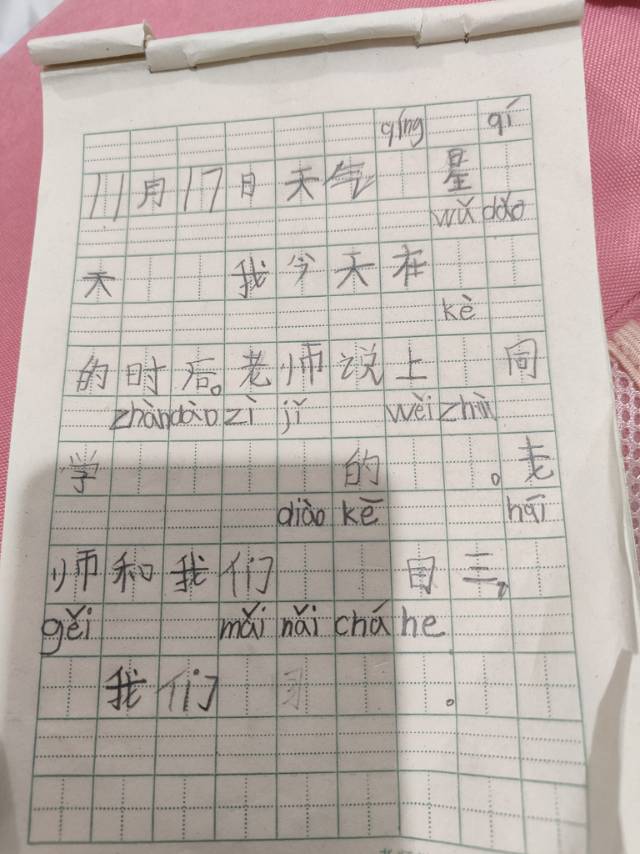 qíng qí
11月17日天气 星
wǔ dǎo
天 我今天在
kè
的时后。老师说上 同
zhàn dào zì jǐ wèi zhì
学 的 。老
diào kē hái
师和我们 目三,
gěi mǎi nǎi chá he
我们 。